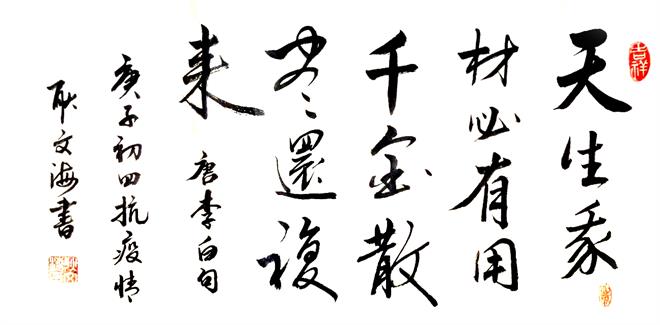 吉祥
天生我
材必有用
千金散
尽還複
来
唐李白句
庚子初四抗疫情
耿文海書